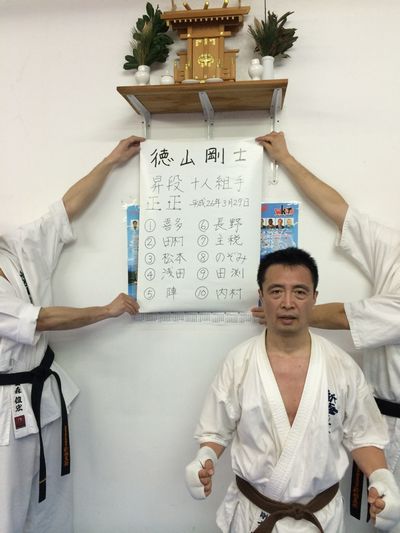 徳山剛士
昇段 十人組手
正正 平成26年3月29日
① 喜多 ⑥ 長野
② 田村 ⑦ 主税
③ 松本 ⑧ のぞみ
④ 浅田 ⑨ 田渕
⑤ 陣 ⑩ 内村